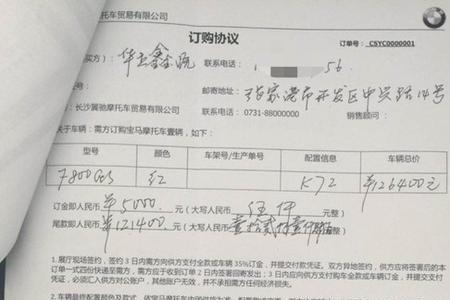 托车贸易有限公司
订购协议
订单号: CSYC0000001
买方)
联系电话: 56
邮寄地址: 张家港市开发区中兴路14号
长沙翼驰摩托车贸易有限公司 联系电话: 0731-88000000 销售顾问:
关于车辆: 需方订购宝马摩托车壹辆,
型号 颜色 车架号/生产单号 配置信息 车辆总价
F800GS 红 K72 ¥126400元
订金即人民币 ¥5000 元(大写人民币 伍仟 元整)
尾款即人民币 ¥121400 元(大写人民币
1. 展厅现场签约,签约 3 日内需方向供方支付全款或车辆 35%订金,并提交付款凭证。双方异地签约,供方应将签署后的本
订单一式四份快递至需方,需方应于收到订单 2 日内签署回寄发出;3 日内应向供方支付购车全款或车辆订金,并提交付款凭
证,必须汇入供方对公账户,其他账户无效,并不承担需方任何经济损失。
2. 车辆最终配置颜色及款式,依宝马摩托车